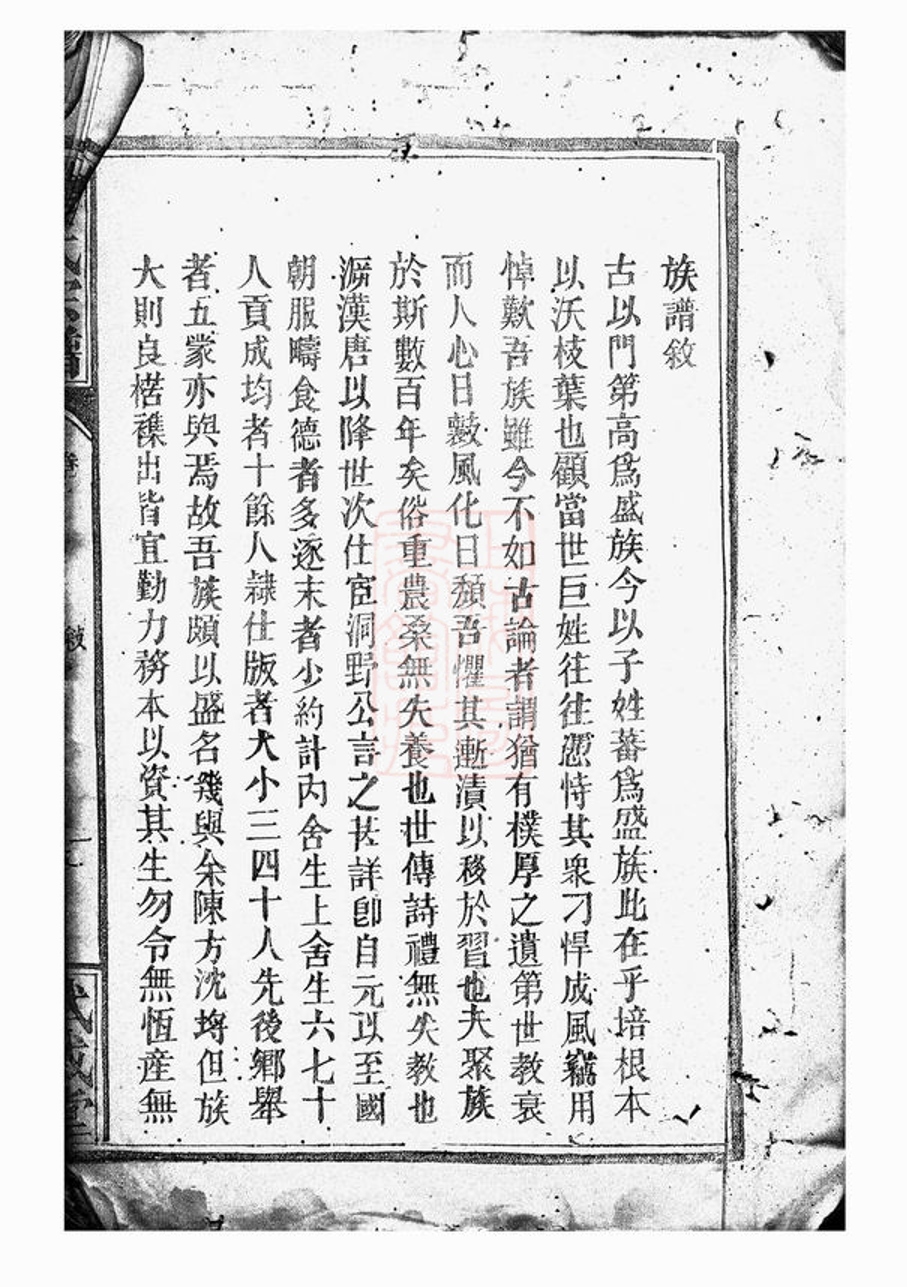 族譜敘
古以門第高爲盛族今以子姓蕃爲盛族此在乎培根本
以沃枝葉也顧當世巨姓往往慿恃其衆刁悍成風竊用
悼歎吾族雖今不如古論者謂猶有樸厚之遺第世教衰
而人心日斁風化日頽吾懼其漸漬以移於習也夫聚族
於斯數百年矣俗重農桑無失養也世傳詩禮無失教也
溯漢唐以降世次仕宦洞野公言之甚詳卽自元以至國
朝服疇食德者多逐末者少約計內舍生上舍生六七十
人貢成均者十餘人隷仕版者大小三四十人先後鄉舉
者五蒙亦與焉故吾族頗以盛名幾與余陳方沈埒但族
大則良楛襍出皆宜勤力務本以資其生勿令無恆産無
敘